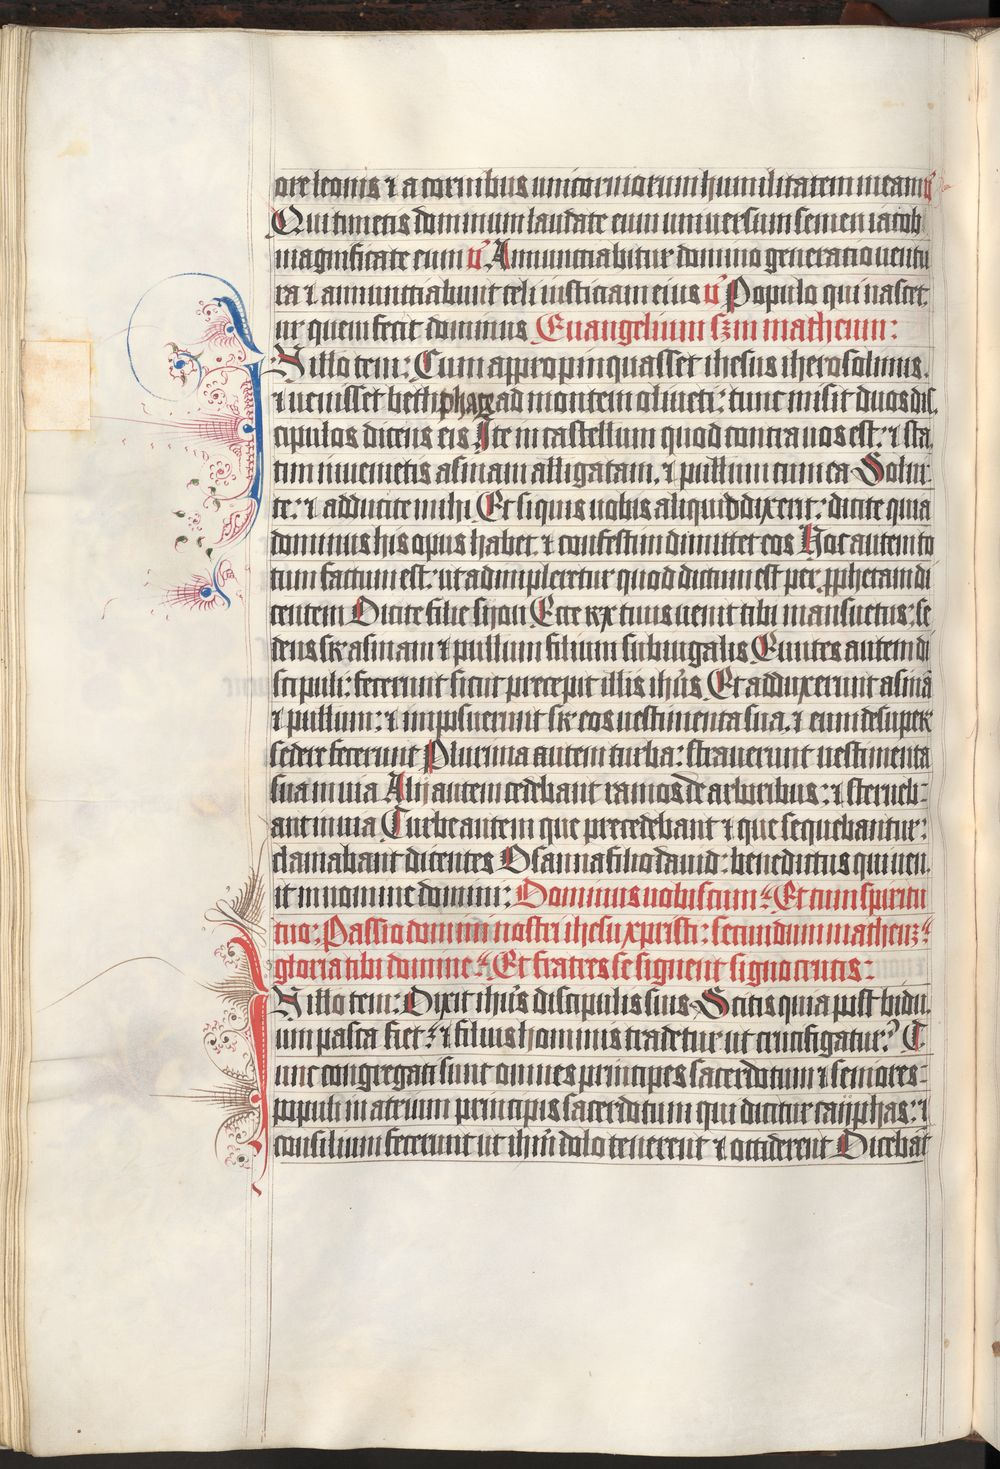 ore leonis ⁊ a cornibus unicorniorum humilitatem meam v̄
Qui timetis dominum laudate eum universum semen iacob
magnificate eum v̄ Annunciabitur domino generatio ventu
ra ⁊ annunciabunt celi iusticiam eius v̄ Populo qui nascet
ur quem fecit dominus Euangelium sz̄m matheum:
N illo tem: Cum appropinquasset ihesus iherosolimis.
⁊ venisset bethphage ad montem oliveti: tunc misit duos dis
cipulos dicens eis Ite in castellum quod contra vos est: ⁊ sta
tim invenietis asinam alligatam, ⁊ pullum cum ea Solui
te: ⁊ adducite mihi Et si quis vobis aliquid dixerit: dicite quia
dominus his opus habet. ⁊ confestim dimittet eos Hoc autem to
tum factum est: ut adimpleretur quod dictum est per ꝓphetam di
centem Dicite filie syon Ecce rex tuus venit tibi mansuetus: se
dens sr̄ asinam ⁊ pullum filium subiugalis Euntes autem di
scipuli: fecerunt sicut precepit illis ihūs Et adduxerunt asinā
⁊ pullum: ⁊ imposuerunt sr̄ eos vestimenta sua. ⁊ eum desuper
sedere fecerunt Plurima autem turba: straverunt vestimenta
sua in via Alij autem cedebant ramos de arboribus: ⁊ sterneb-
ant in via Turbe autem que precedebant ⁊ que sequebantur:
clamabant dicentes Osanna filio david: benedictus qui ven
it in nomine domini: Dominus vobiscum Et cum spiritu
tuo: Passio domini nostri ihesu xpristi: secundum matheuz
gloria tibi domine Et fratres se signent signo crucis:
N illo tem: Dixit ihūs discipulis suis Scitis quia post bidu
um pasca fiet ⁊ filius hominis tradetur ut crucifigatur? T
unc congregati sunt omnes principes sacerdotum ⁊ seniores-
populi in atrium principis sacerdotum qui dicitur cayphas: ⁊
consilium fecerunt ut ihm̄ dolo tenerent ⁊ occiderent Dicebāt